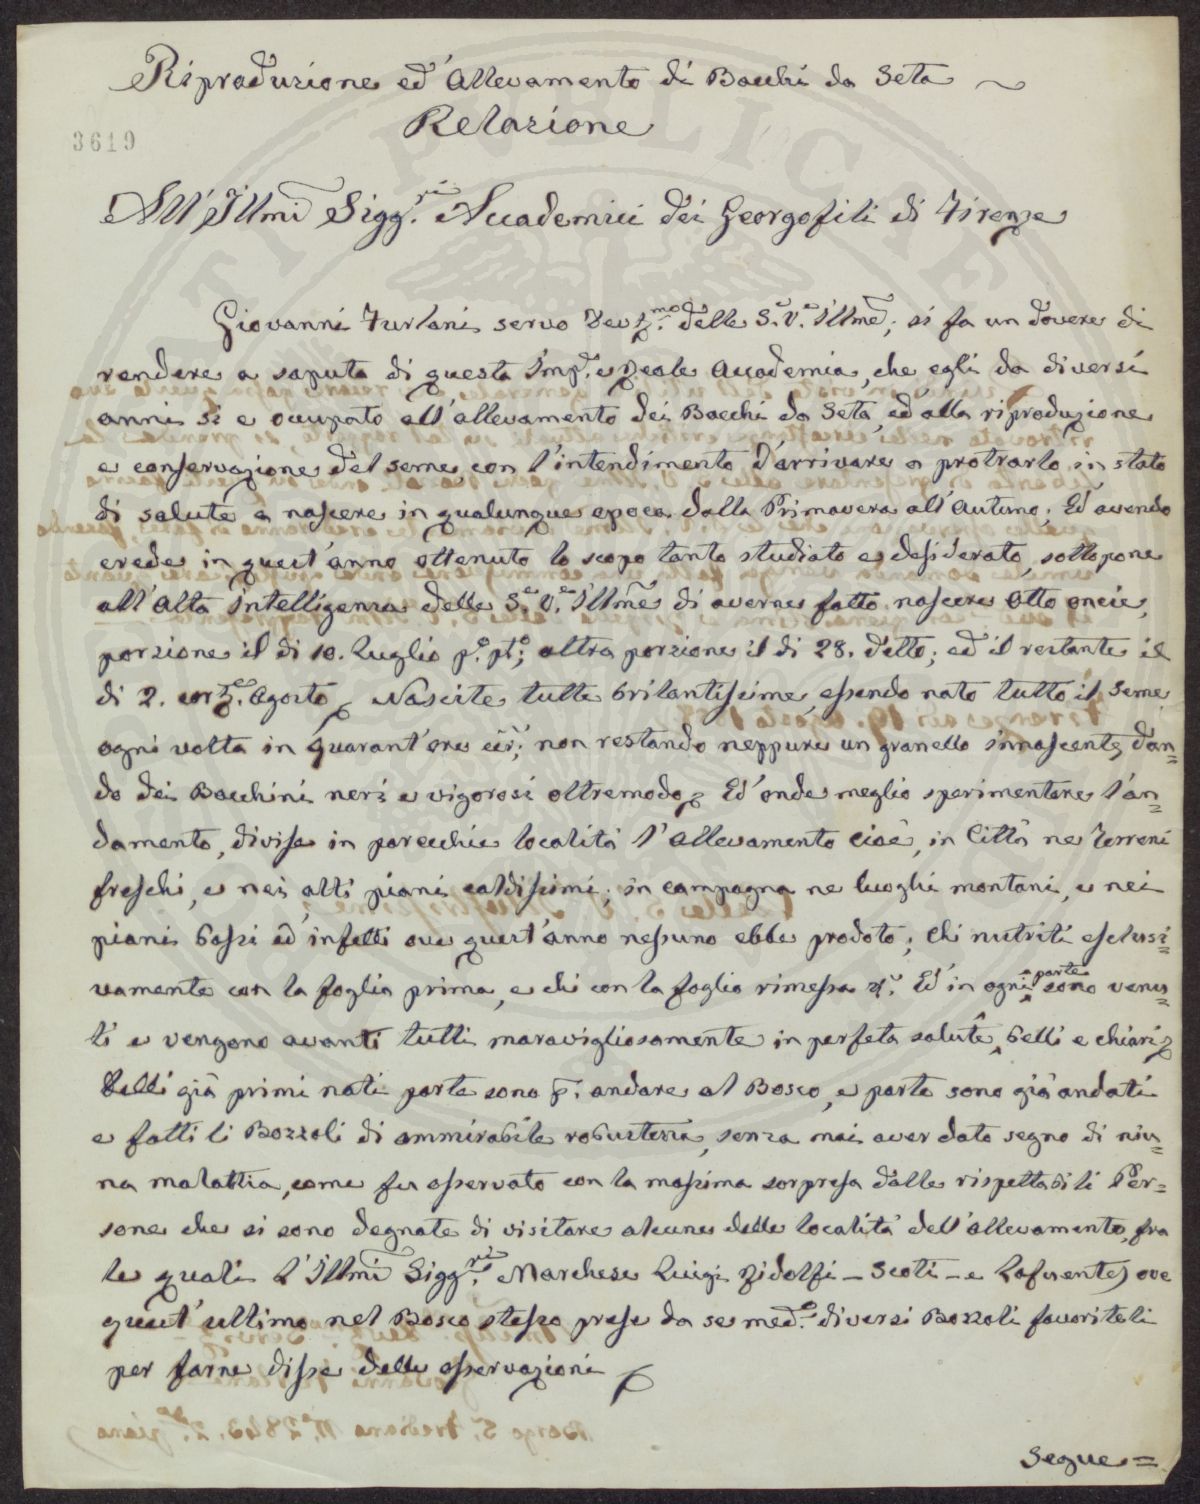 Riproduzione ed' Allevamento di Bacchi da Seta
Relazione
3619
All' Illmi Sigg.ri Accademici dei Georgofili di Firenze
Giovanni Furlani servo delle S.e V.e Illme; si fa un dovere di
rendere a saputa di questa Imp.e e Reale Accademia, che egli da diversi
anni si e occupato all'allevamento dei Bacchi da Seta, ed alla riproduzione
e conservazione del seme con l'intendimento d'arrivare a protrarlo in stato
di salute a nascere in qualunque epoca dalla Primavera all'Autuno; Ed avendo
crede in quest'anno ottenuto lo scopo tanto studiato e desiderato, sottopone
all'Alta Intelligenza delle S.e V.e Illme di averne fatto nascere Otto oncie,
porzione il di 10. Luglio p.o pt.o; altra porzione il di 28. detto; ed il restante il
di 2. Agosto Nascite tutte brilantissime, essendo nato tutto il seme
ogni volta in quarant'ore cir.; non restando neppure un granello innascente, dan=
do dei Bacchini neri e vigorosi oltremodo Ed'onde meglio sperimentare l'an=
damento, divise in parecchie località l'Allevamento Cioè, in Città ne Terreni
freschi, e nei alti piani caldissimi; in campagna ne luoghi montani, e nei
piani bassi ed'infetti ove quest'anno nessuno ebbe prodoto; Chi nutriti esclusi=
vamente con la foglia prima, e chi con la foglia rimessa Ed'in ogni parte sono venu=
ti e vengono avanti tutti maravigliosamente in perfeta salute, belli e chiari
già primi nati parte sono p. andare al Bosco, e parte sono già andati
e fatti li Bozzoli di ammirabile robustezza, senza mai aver dato segno di niu=
na malattia, come fu osservato con la massima sorpresa dalle rispettabili Per=
sone che si sono degnate di visitare alcune delle località dell'allevamento, fra
le quali L'Illmi Sigg.ri Marchese Luigi Ridolfi - Scoti - e Lafuente, ove
quest'ultimo nel Bosco stesso prese da se med.o diversi Bozzoli favoriteli
per farne disse delle osservazioni
Segue=